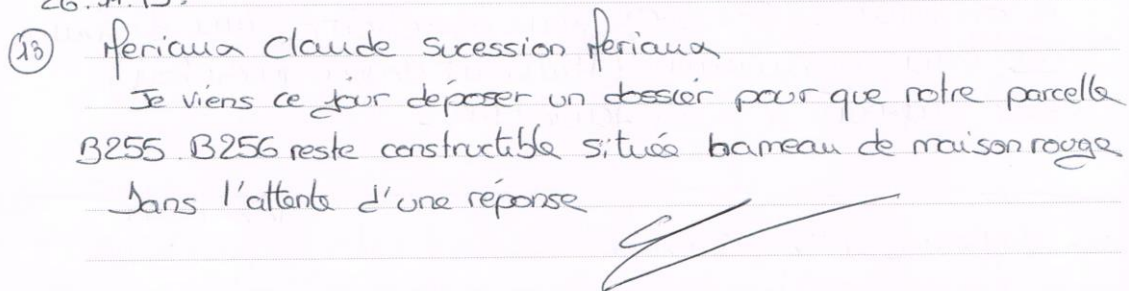 26.11.15.
13 Meriaux Claude Sucession Meriaux
Je viens ce jour déposer un dossier pour que notre parcelle
B255 B256 reste constructible située hameau de maison rouge
Dans l'attente d'une réponse